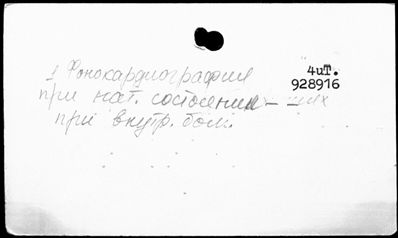 1 Фонокардиография
4чТ.
928916
при пат. состояниях
при внутр. бол.